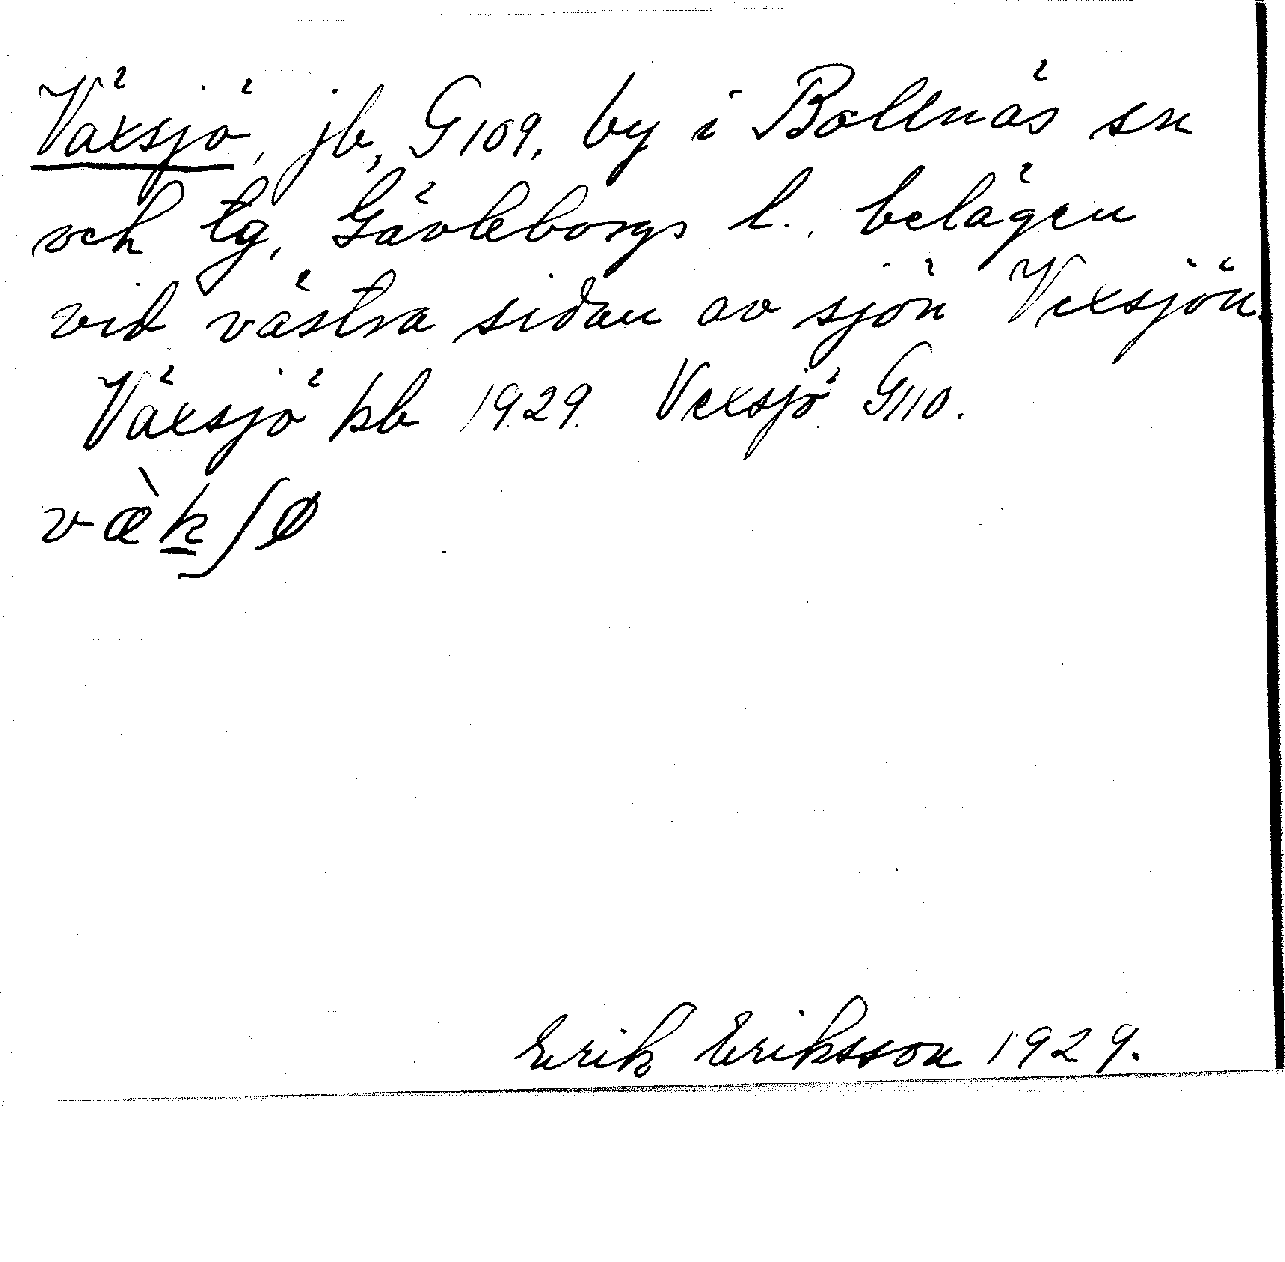 Växsjö, jb, G109, by i Bollnäs sn
och tg, Gävleborgs l., belägen
vid västra sidan av sjön Vexsjön.
Växsjö kb 1929. Vexsjö G110.
væ̀k̲ʃø
Erik Eriksson 1929.